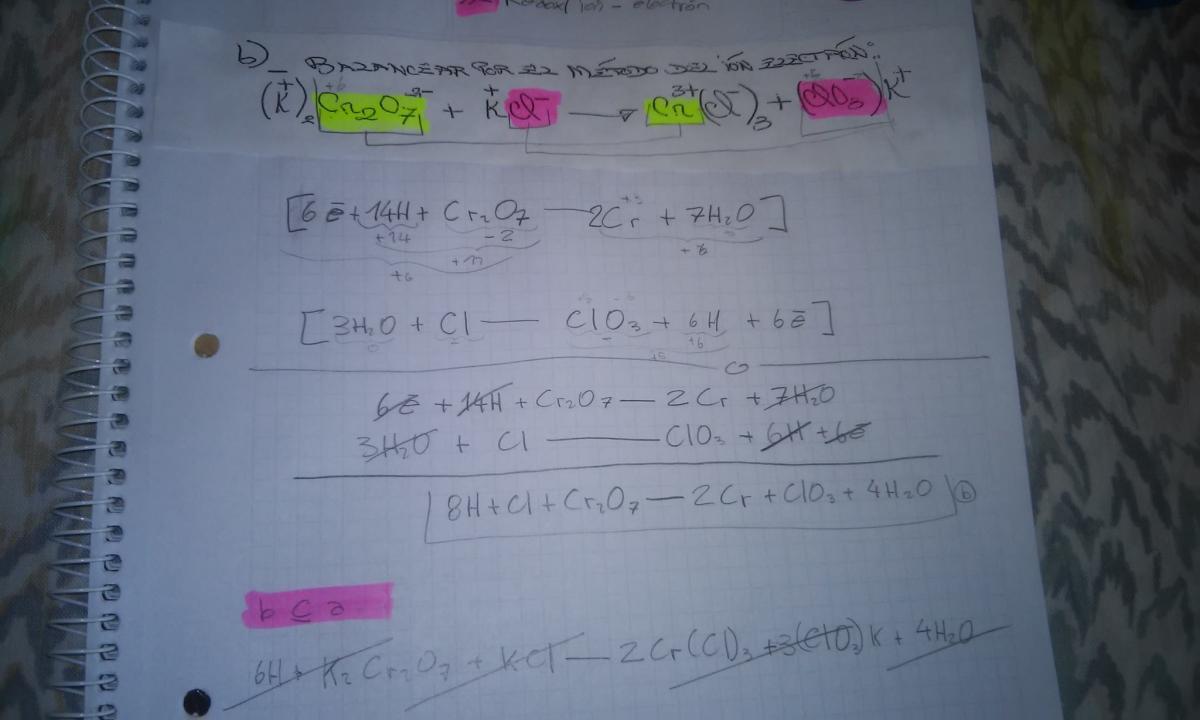 Redox/ion - electrón
b)_ BALANCEAR POR EL MÉTODO DEL IÓN ELECTRÓN:
(K⁺)₂ Cr₂O₇²⁻ + K⁺Cl⁻ → Cr³⁺(Cl⁻)₃ + (ClO₃⁻)K⁺
[6ē + 14H + Cr₂O₇ — 2Cr⁺³ + 7H₂O]
+14 -2
+6
[3H₂O + Cl — ClO₃ + 6H + 6ē]
0 - - +6
+5
6ē + 14H + Cr₂O₇ — 2Cr + 7H₂O
3H₂O + Cl — ClO₃ + 6H + 6ē
8H + Cl + Cr₂O₇ — 2Cr + ClO₃ + 4H₂O b
b C a
6H + K₂Cr₂O₇ + KCl — 2Cr(Cl)₃ + 3(ClO₃)K + 4H₂O